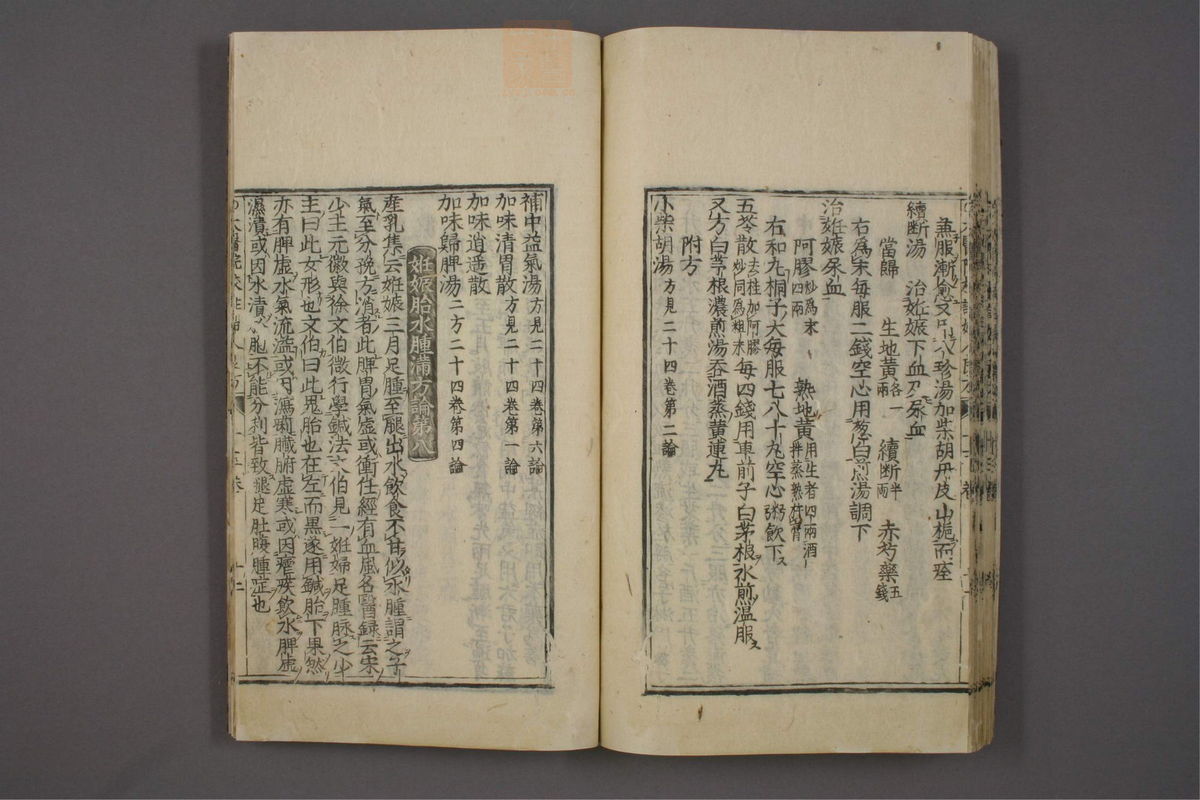 兼服漸愈又以八珍湯加柴胡丹皮山梔而痊
續斷湯　治姙娠下血及尿血
當歸　生地黃各一兩　續斷半兩　赤芍藥五錢
右為末每服二錢空心用葱白煎湯調下
治姙娠尿血
阿膠四兩炒為末　熟地黃用生者四兩酒拌蒸熟杵膏
右和丸桐子大每服七八十丸空心粥飲下
五苓散去桂加阿膠炒同為粗末每四錢用車前子白茅根水煎温服
又方白芧根濃煎湯吞酒蒸黃連丸
附方
小柴胡湯方見二十四卷第二論
補中益氣湯方見二十四卷第六論
加味清胃散方見二十四卷第一論
加味逍遥散
加味歸脾湯二方二十四卷第四論
姙娠胎水腫滿方論第八
産乳集云姙娠三月足腫至腿出水飲食不甘似水腫謂之子
氣至分娩方消者此脾胃氣虛或衝任經有血風各醫録云宋
少主元徽與徐文伯微行學鍼法文伯見一姙婦足腫脉之少
主曰此女形也文伯曰此鬼胎也在左而黒遂用鍼胎下果然
亦有脾虛水氣流溢或因瀉痢臟腑虛寒或因瘧疾飲水脾虛
濕漬或因水漬於胞不能分利皆致腿足肚腹腫症也